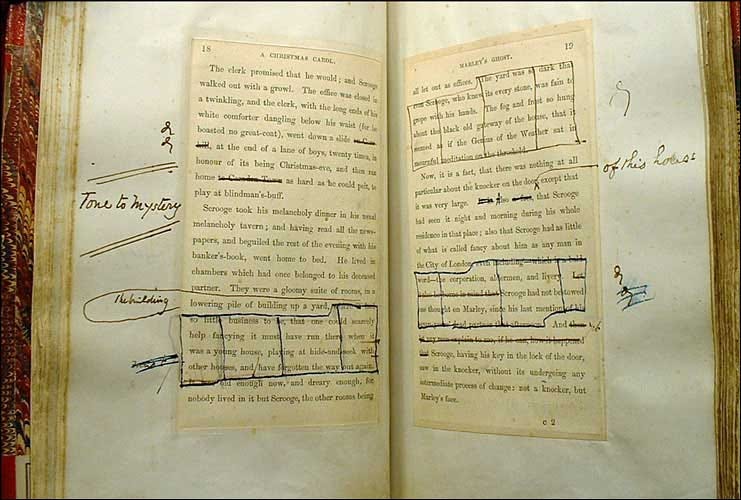 18
A CHRISTMAS CAROL.
The clerk promised that he would; and Scrooge
walked out with a growl. The office was closed in
a twinkling, and the clerk, with the long ends of his
white comforter dangling below his waist (for he
boasted no great-coat), went down a slide
at the end of a lane of boys, twenty times, in
honour of its being Christmas-eve, and then ran
home to Camden Town as hard as he could pelt, to
play at blindman's-buff.
Tone to mystery
Scrooge took his melancholy dinner in his usual
melancholy tavern; and having read all the news-
papers, and beguiled the rest of the evening with his
banker's-book, went home to bed. He lived in
chambers which had once belonged to his deceased
partner. They were a gloomy suite of rooms, in a
The building
lowering pile of building up a yard,
so little business to be, that one could scarcely
help fancying it must have run there when it
was a young house, playing at hide-and-seek with
other houses, and have forgotten the way out again.
old enough now, and dreary enough, for
nobody lived in it but Scrooge, the other rooms being
MARLEY'S GHOST.
19
all let out as offices. The yard was so dark that
even Scrooge, who knew its every stone, was fain to
grope with his hands. The fog and frost so hung
about the black old gateway of the house, that it
seemed as if the Genius of the Weather sat in
mournful meditation on the threshold.
Now, it is a fact, that there was nothing at all
particular about the knocker on the door, except that
of this house
it was very large. also that Scrooge
had seen it night and morning during his whole
residence in that place; also that Scrooge had as little
of what is called fancy about him as any man in
the City of London, even including—which is a bold
word—the corporation, aldermen, and livery. Let
it also be borne in mind that Scrooge had not bestowed
one thought on Marley, since his last mention of his
dead partner that afternoon. And then
any man explain to me, if he can, how it happened
that Scrooge, having his key in the lock of the door,
saw in the knocker, without its undergoing any
intermediate process of change: not a knocker, but
Marley's face.
c 2